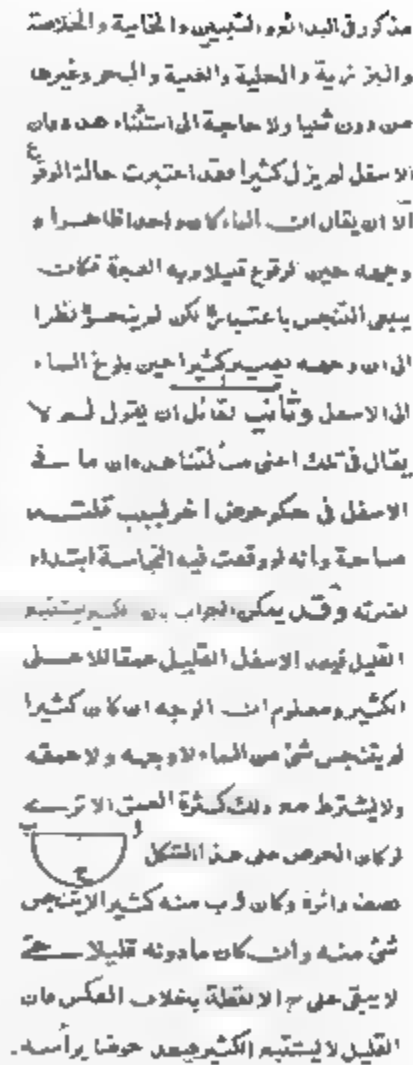 مذكور في البدائع والتبيين والخانية والخلاصة
والبزازية والحلية والغنية والبحر وغيرها
من دون ثنيا ولا حاجة الى استثناء هذه فان
الاسفل لم يزل كثيرا فقد اعتبرت حالة الوقوع
الا ان يقال ان الماء كان واحدا ظاهرا و
وجهه حين الوقوع قليلا وبه العبرة فكانت
ينبغي التنجس باعتباره لكن لم ينجسوه نظرا
الى ان وجهه يصير كثيرا حين بلوغ الماء
الى الاسفل وثانيا لقائل ان يقول لم لا
يقال في تلك اعني مسألتنا هذه ان ما في
الاسفل في حكم حوض اخر لسبب قلته
مساحة وأنه لو وقعت فيه النجاسة ابتداء
لضرته وقد يمكن الجواب بان الكثير يستتبع
القليل فيعد الاسفل القليل عمقا للاعلى
الكثير ومعلوم ان الوجه ان كان كثيرا
لم يتنجس شئ من الماء لا وجهه ولا عمقه
ولا يشترط مع ذلك كثرة العمق الا ترى
لو كان الحوض على هذا الشكل
ا ب
ج
نصف دائرة وكان ا ب منه كثيرا لا يتنجس
شئ منه وان كان ما دونه قليلا حتى
لا يبقى على ج الا نقطة بخلاف العكس فان
القليل لا يستتبع الكثير فيعد حوضا برأسه.